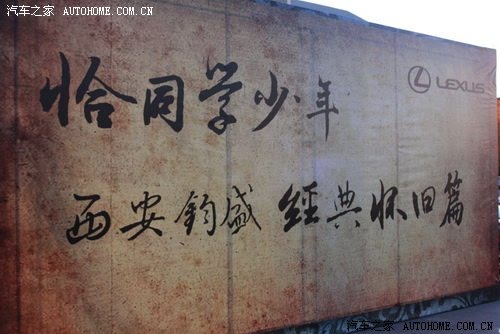 汽车之家 AUTOHOME.COM.CN
LEXUS
恰同学少年
西安钧盛 經典怀旧篇
汽车之家 AUTOHOME.COM.CN